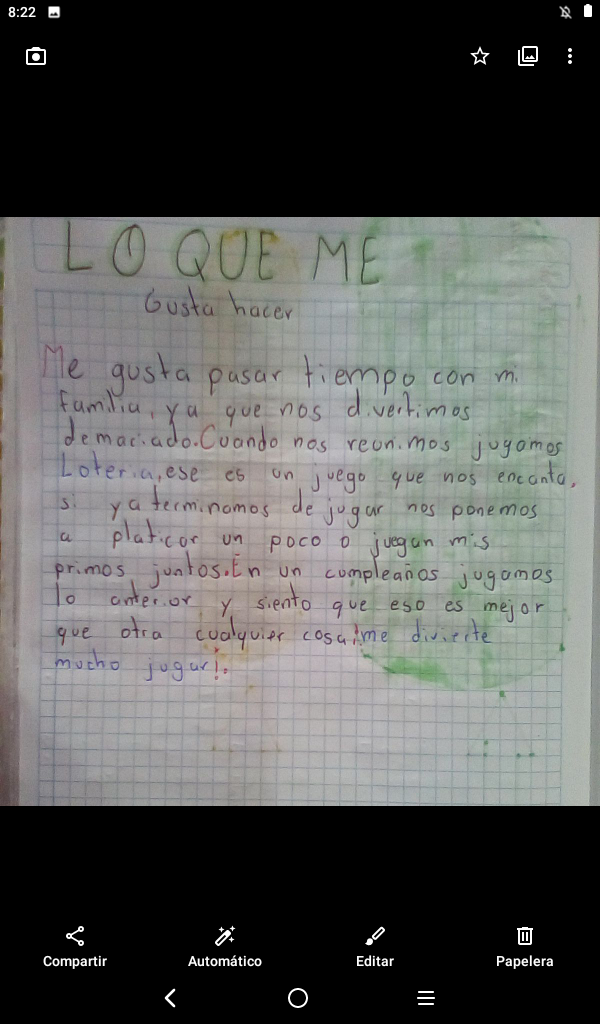 8:22
LO QUE ME
Gusta hacer
Me gusta pasar tiempo con mi
familia, ya que nos divertimos
demaciado.Cuando nos reunimos jugamos
Loteria,ese es un juego que nos encanta,
si ya terminamos de jugar nos ponemos
a platicar un poco o juegan mis
primos juntos.En un cumpleaños jugamos
lo anterior y siento que eso es mejor
que otra cualquier cosa!me divierte
mucho jugar!.
Compartir
Automático
Editar
Papelera